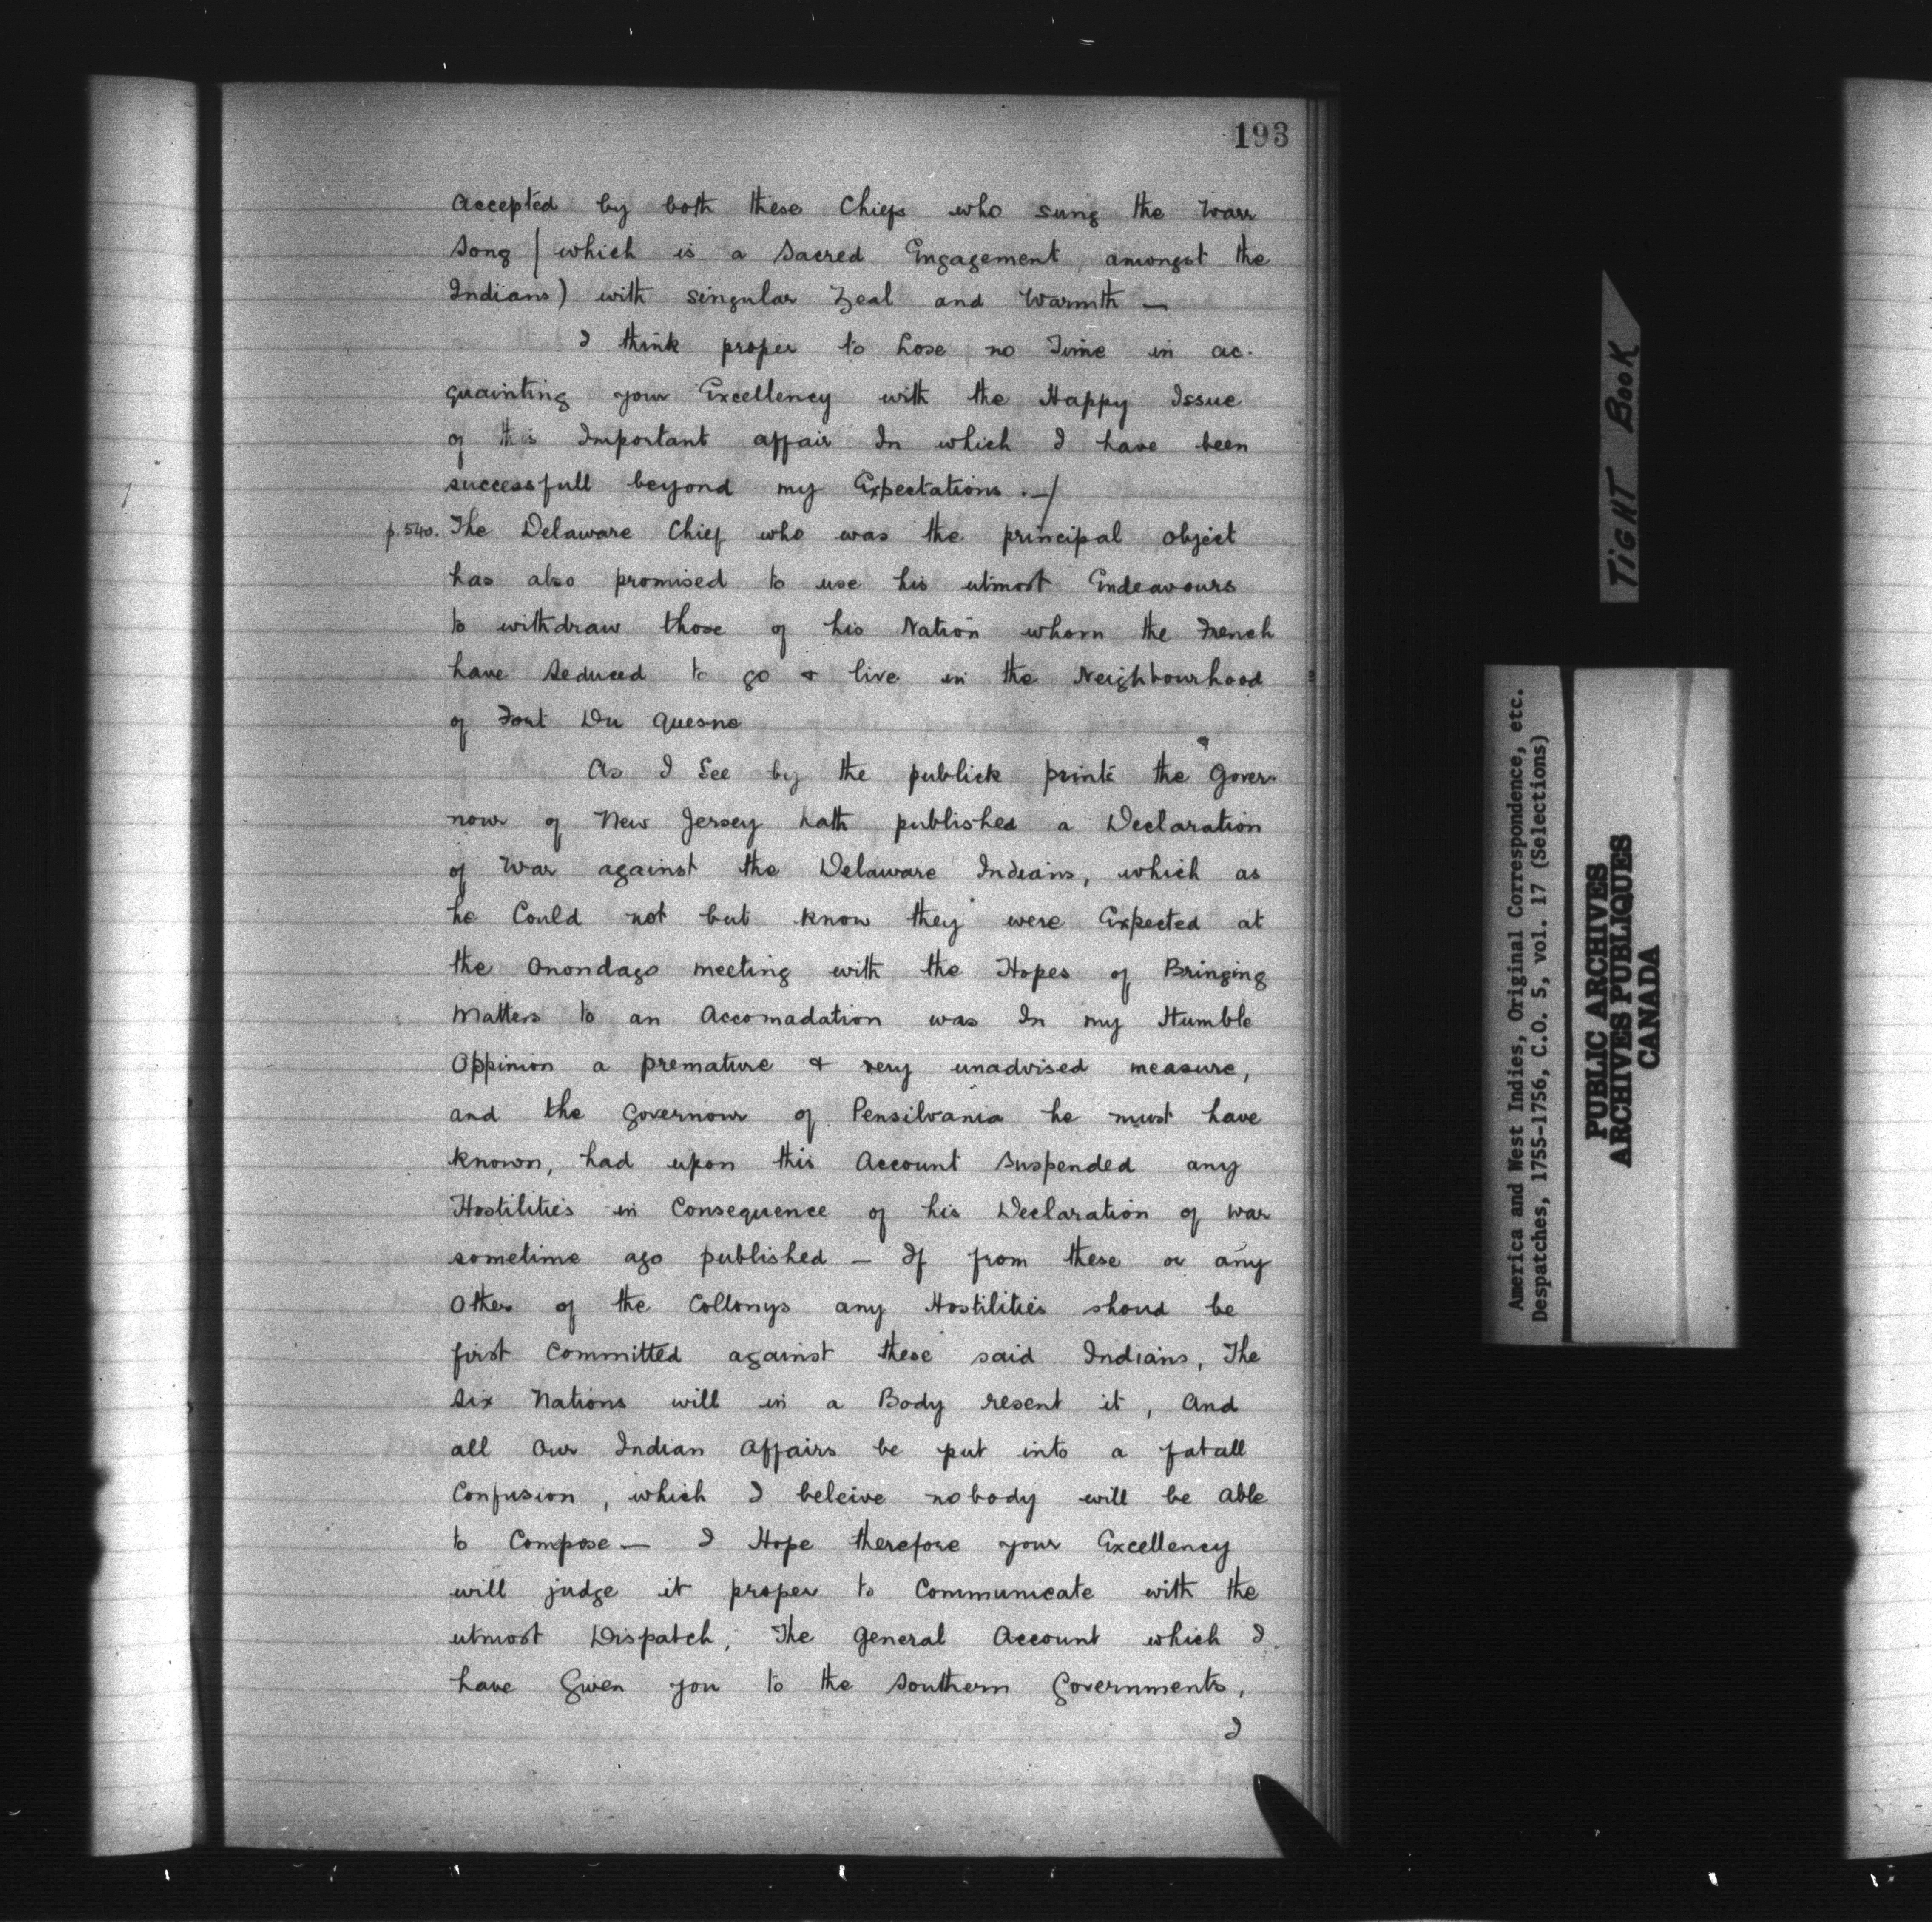 193
accepted by both these Chiefs who sung the Warr
Song (which is a Sacred Engagement amongst the
Indians) with singular Zeal and Warmth —
I think proper to Lose no Time in ac-
quainting your Excellency with the Happy Issue
of this Important affair In which I have been
successfull beyond my Expectations .—/
p. 540. The Delaware Chief who was the principal object
has also promised to use his utmost Endeavours
to withdraw those of his Nation whom the French
have Seduced to go & live in the Neighbourhood
of Fort Du Quesne
As I See by the publick prints the Gover-
nour of New Jersey hath published a Declaration
of War against the Delaware Indians, which as
he Could not but know they were Expected at
the Onondago meeting with the Hopes of Bringing
Matters to an Accomadation was In my Humble
Oppinion a premature & very unadvised measure,
and the Governour of Pensilvania he must have
known, had upon this Account Suspended any
Hostilities in Consequence of his Declaration of War
sometime ago published — If from these or any
Other of the Collonys any Hostilities shoud be
first Committed against these said Indians, The
Six Nations will in a Body resent it, And
all Our Indian Affairs be put into a fatall
Confusion, which I beleive nobody will be able
to Compose — I Hope therefore your Excellency
will judge it proper to Communicate with the
utmost Dispatch, The General Account which I
have Given you to the Southern Governments,
I
TIGHT BOOK
America and West Indies, Original Correspondence, etc.
Despatches, 1755-1756, C.O. 5, vol. 17 (Selections)
PUBLIC ARCHIVES
ARCHIVES PUBLIQUES
CANADA